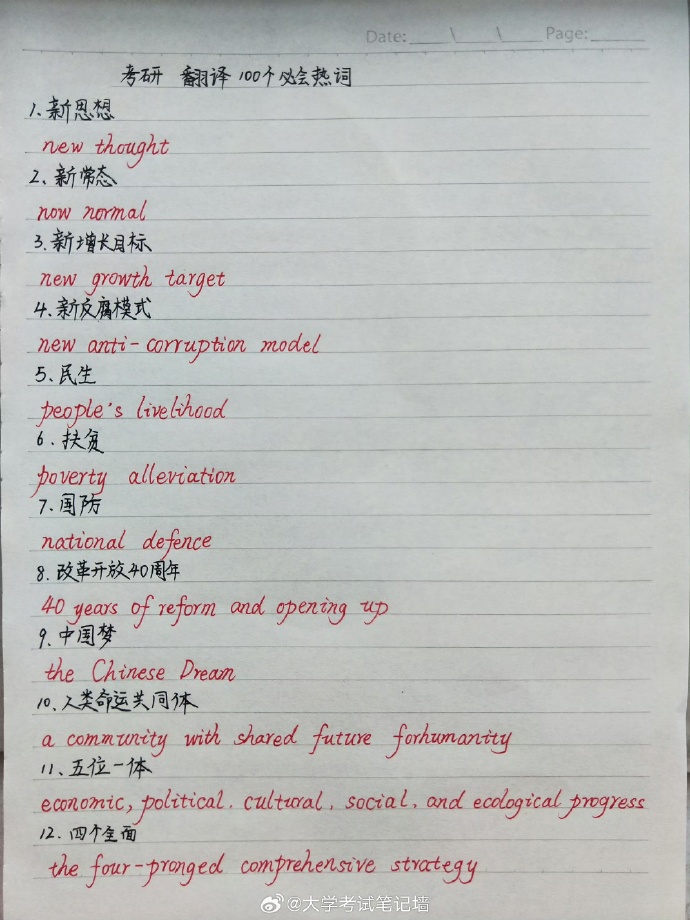 Date: \ \ Page:
考研 翻译100个必会热词
1.新思想
new thought
2.新常态
now normal
3.新增长目标
new growth target
4.新反腐模式
new anti-corruption model
5.民生
people's livelihood
6.扶贫
poverty alleviation
7.国防
national defence
8.改革开放40周年
40 years of reform and opening up
9.中国梦
the Chinese Dream
10、人类命运共同体
a community with shared future forhumanity
11、五位一体
economic, political, cultural, social, and ecological progress
12.四个全面
the four-pronged comprehensive strategy
@大学考试笔记墙